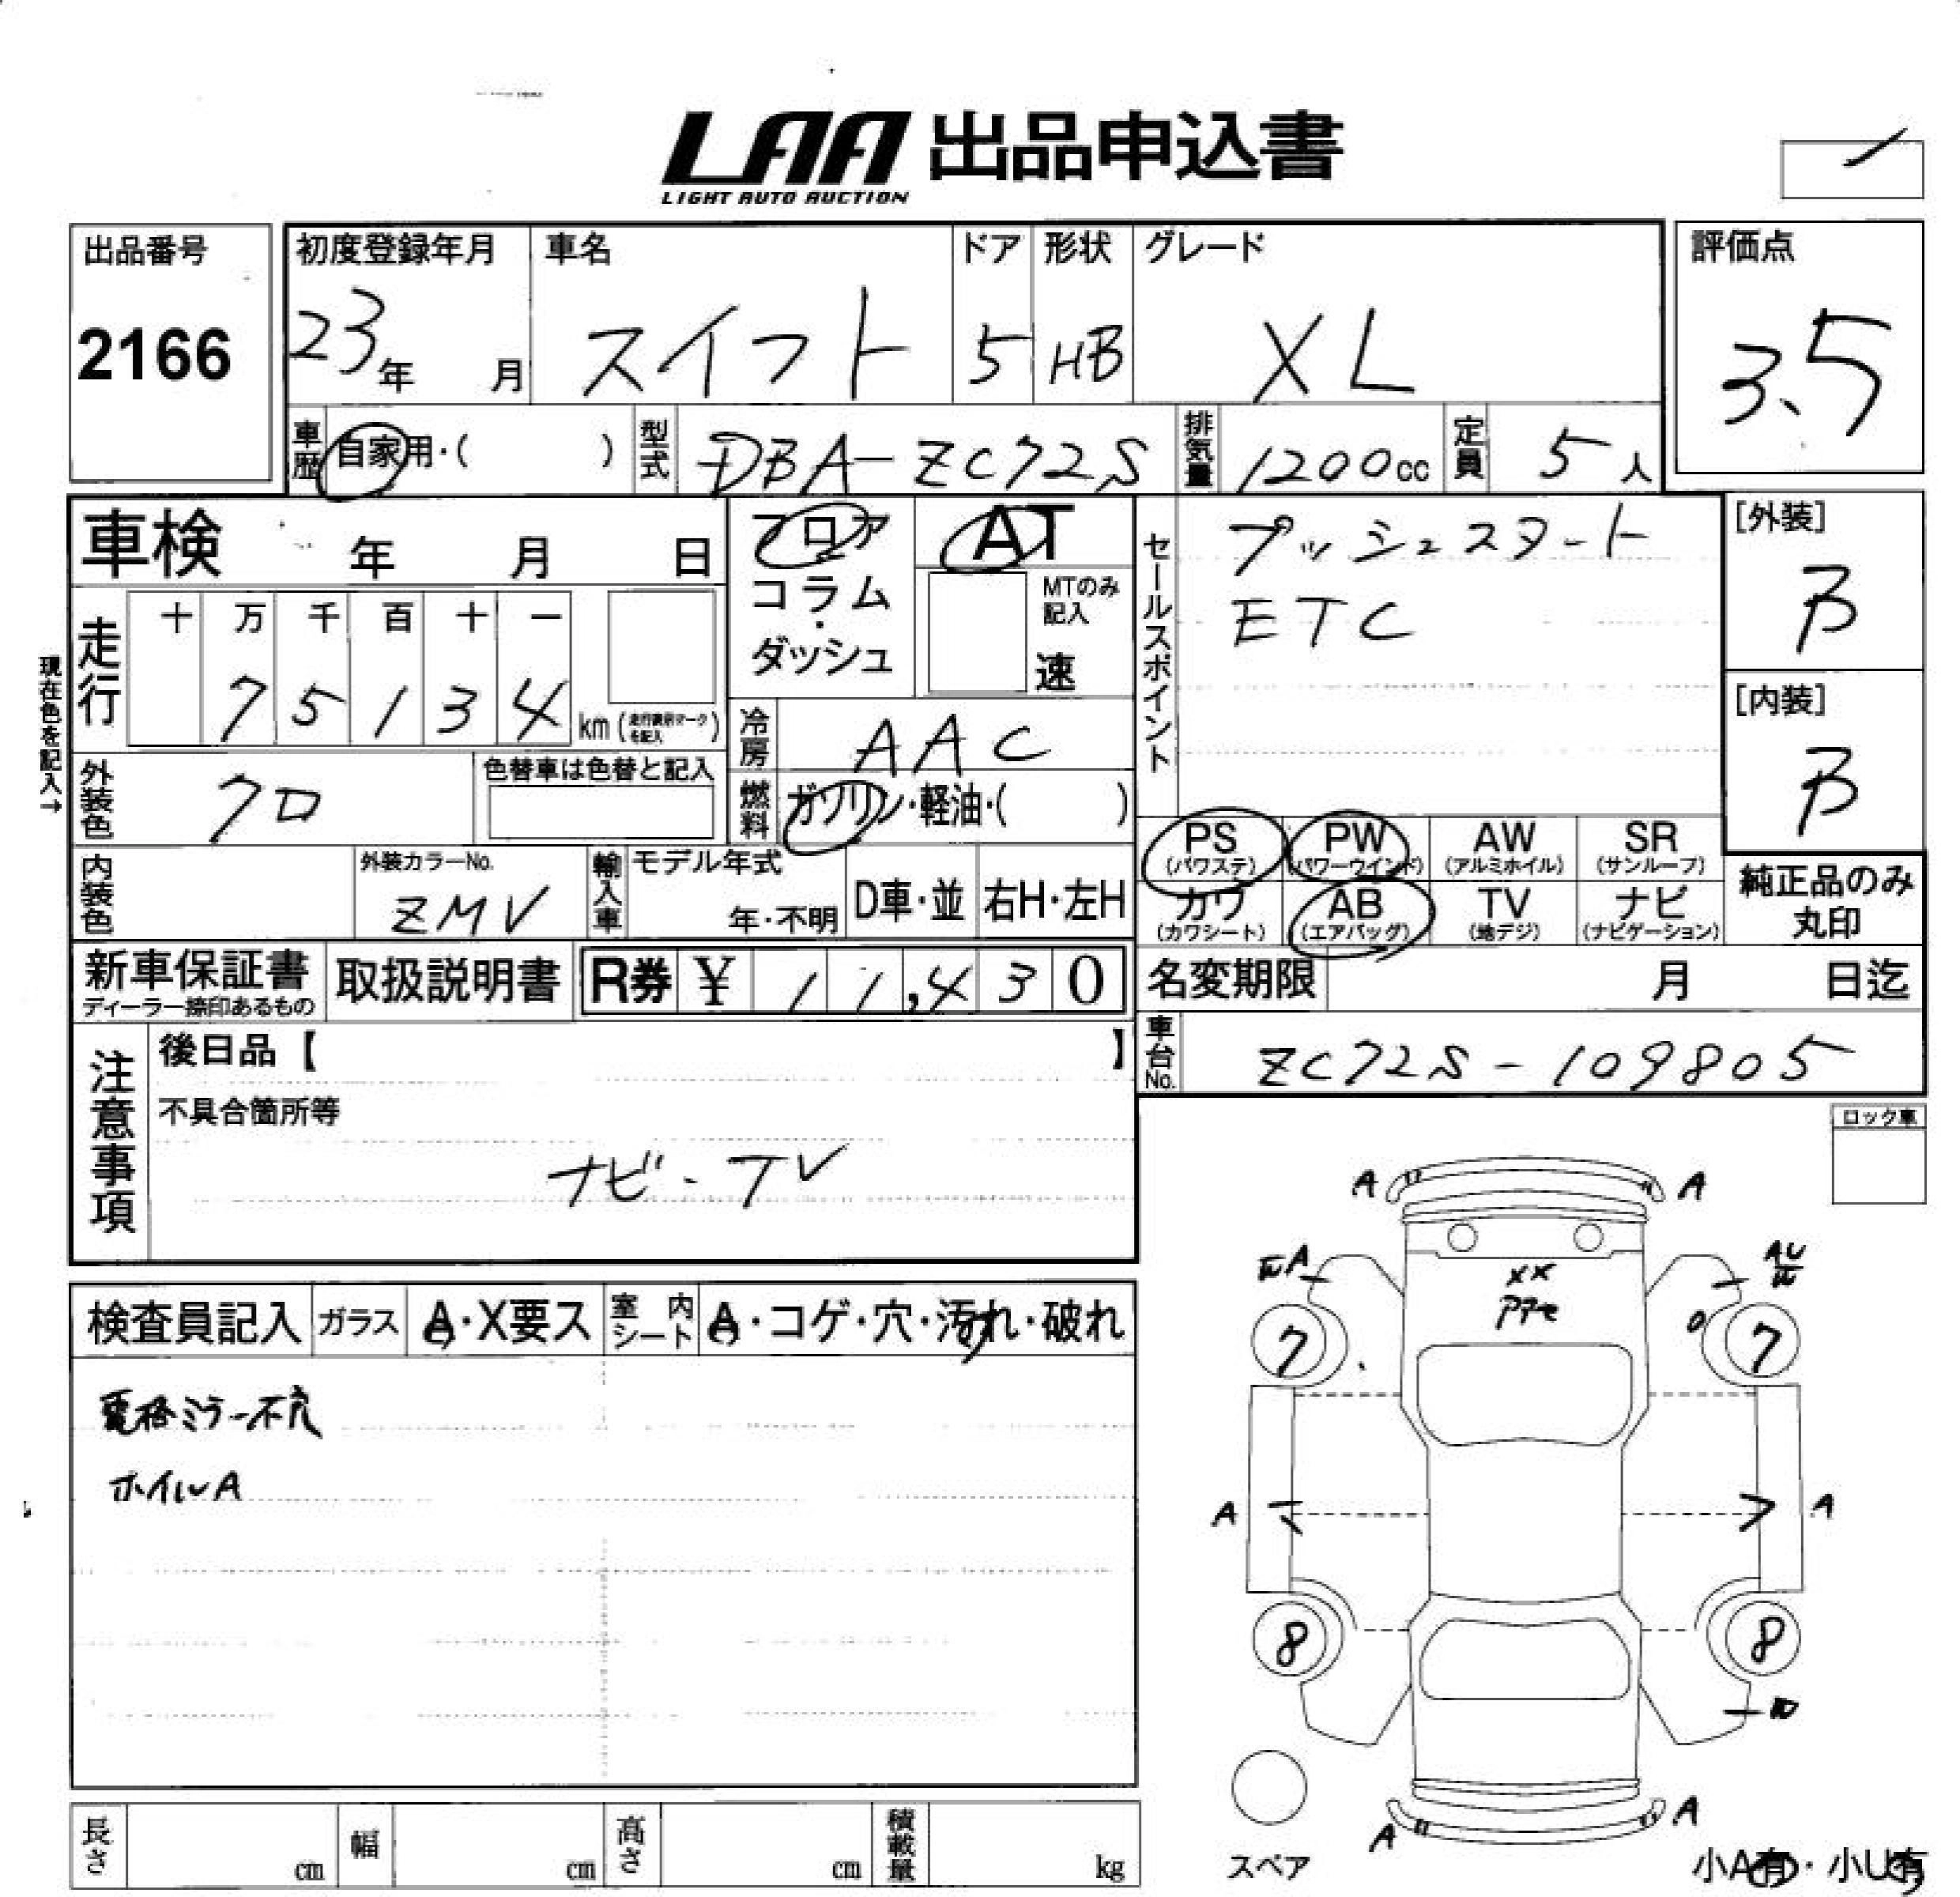 LAA 出品申込書
LIGHT AUTO AUCTION
出品番号
2166
初度登録年月
23年 月
車名
スイフト
ドア
5
形状
HB
グレード
XL
評価点
3.5
車歴 自家用・( )
型式 DBA-ZC72S
排気量 1200cc
定員 5人
車検 年 月 日
フロア
コラム・ダッシュ
AT
MTのみ記入
速
セールスポイント
プッシュスタート
ETC
[外装]
B
[内装]
B
現在色を記入→
走行
十 万 千 百 十 一
7 5 1 3 4 km
冷房 AAC
外装色 クロ
色替車は色替と記入
燃料 ガソリン・軽油・( )
PS (パワステ)
PW (パワーウインド)
AW (アルミホイル)
SR (サンルーフ)
カワ (カワシート)
AB (エアバッグ)
TV (地デジ)
ナビ (ナビゲーション)
純正品のみ丸印
内装色
外装カラーNo.
ZMV
輸入車
モデル年式
年・不明
D車・並
右H・左H
新車保証書
ディーラー捺印あるもの
取扱説明書
R券 ¥ 11,430
名変期限 月 日迄
車台No. ZC72S-109805
注意事項
後日品【 】
不具合箇所等
ナビ・TV
ロック車
検査員記入
ガラス A・X要ス
室内シート A・コゲ・穴・汚れ・破れ
電格ミラー不良
ホイルA
A A
A
AU
XX
7 7
A A
8 8
A A
スペア
小A有・小U有
長さ cm
幅 cm
高さ cm
積載量 kg